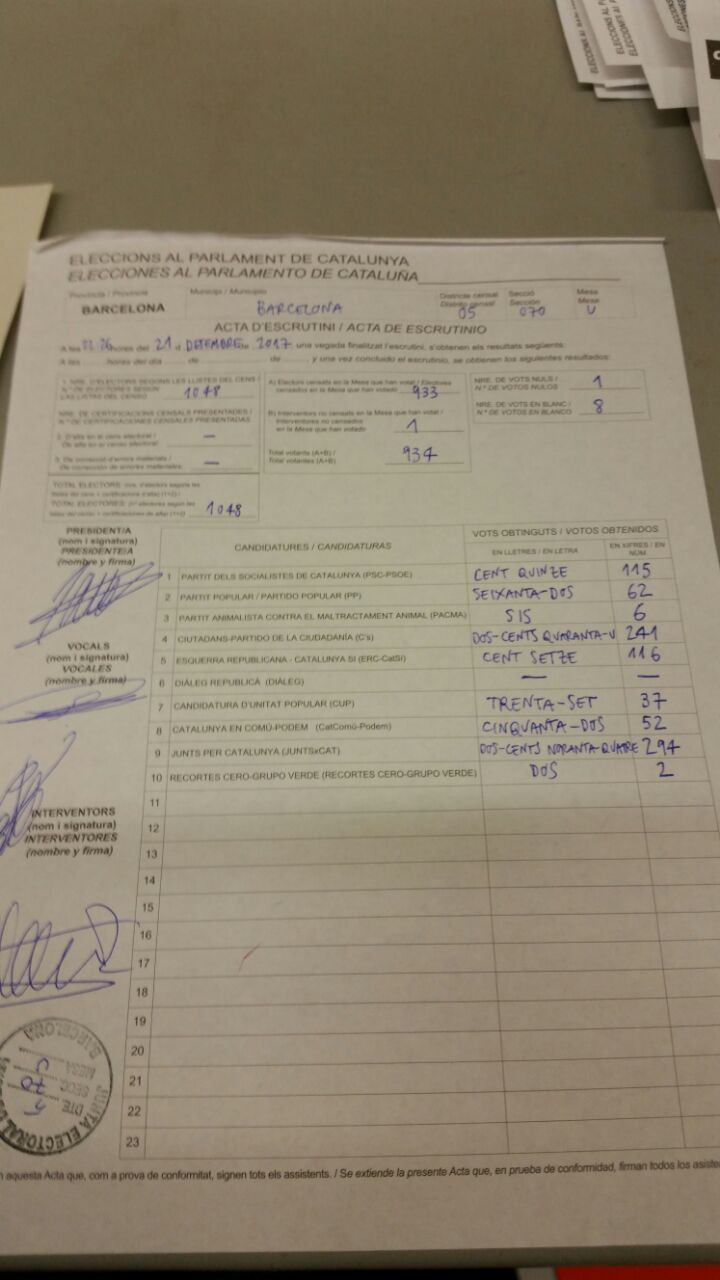 ELECCIONS AL PARLAMENT DE CATALUNYA
ELECCIONES AL PARLAMENTO DE CATALUÑA
Província / Provincia
Municipi / Municipio
Districte censal
Distrito censal
Secció
Sección
Mesa
Mesa
BARCELONA
BARCELONA
05
070
U
ACTA D'ESCRUTINI / ACTA DE ESCRUTINIO
A les 22.26 hores del 21 d DETEMBRE de 2017 una vegada finalitzat l'escrutini, s'obtenen els resultats següents:
A las hores del día de de y una vez concluido el escrutinio, se obtienen los siguientes resultados:
1. NRE. D'ELECTORS SEGONS LES LLISTES DEL CENS /
N.º DE ELECTORES SEGÚN
LAS LISTAS DEL CENSO
1048
NRE. DE CERTIFICACIONS CENSALS PRESENTADES /
N.º DE CERTIFICACIONES CENSALES PRESENTADAS
2. D'alta en el cens electoral /
De alta en el censo electoral:
—
3. De correcció d'errors materials /
De corrección de errores materiales:
—
TOTAL ELECTORS
TOTAL ELECTORES
1048
A) Electors censats en la Mesa que han votat / Electores
censados en la Mesa que han votado
933
B) Interventors no censats en la Mesa que han votat /
Interventores no censados
en la Mesa que han votado
1
Total votants (A+B) /
Total votantes (A+B)
934
NRE. DE VOTS NULS /
N.º DE VOTOS NULOS
1
NRE. DE VOTS EN BLANC /
N.º DE VOTOS EN BLANCO
8
PRESIDENT/A
(nom i signatura)
PRESIDENTE/A
(nombre y firma)
VOCALS
(nom i signatura)
VOCALES
(nombre y firma)
INTERVENTORS
(nom i signatura)
INTERVENTORES
(nombre y firma)
CANDIDATURES / CANDIDATURAS
VOTS OBTINGUTS / VOTOS OBTENIDOS
EN LLETRES / EN LETRA
EN XIFRES / EN
NÚM
1 PARTIT DELS SOCIALISTES DE CATALUNYA (PSC-PSOE) CENT QUINZE 115
2 PARTIT POPULAR / PARTIDO POPULAR (PP) SEIXANTA-DOS 62
3 PARTIT ANIMALISTA CONTRA EL MALTRACTAMENT ANIMAL (PACMA) SIS 6
4 CIUTADANS-PARTIDO DE LA CIUDADANÍA (C's) DOS-CENTS QUARANTA-U 241
5 ESQUERRA REPUBLICANA - CATALUNYA SÍ (ERC-CatSí) CENT SETZE 116
6 DIÀLEG REPUBLICÀ (DIÀLEG) — —
7 CANDIDATURA D'UNITAT POPULAR (CUP) TRENTA-SET 37
8 CATALUNYA EN COMÚ-PODEM (CatComú-Podem) CINQUANTA-DOS 52
9 JUNTS PER CATALUNYA (JUNTSxCAT) DOS-CENTS NORANTA-QUATRE 294
10 RECORTES CERO-GRUPO VERDE (RECORTES CERO-GRUPO VERDE) DOS 2
11
12
13
14
15
16
17
18
19
20
21
22
23
JUNTA ELECTORAL
BARCELONA
DTE. 5
SECC. 70
MESA U
n aquesta Acta que, com a prova de conformitat, signen tots els assistents. / Se extiende la presente Acta que, en prueba de conformidad, firman todos los asiste
ELECCIONS AL PA